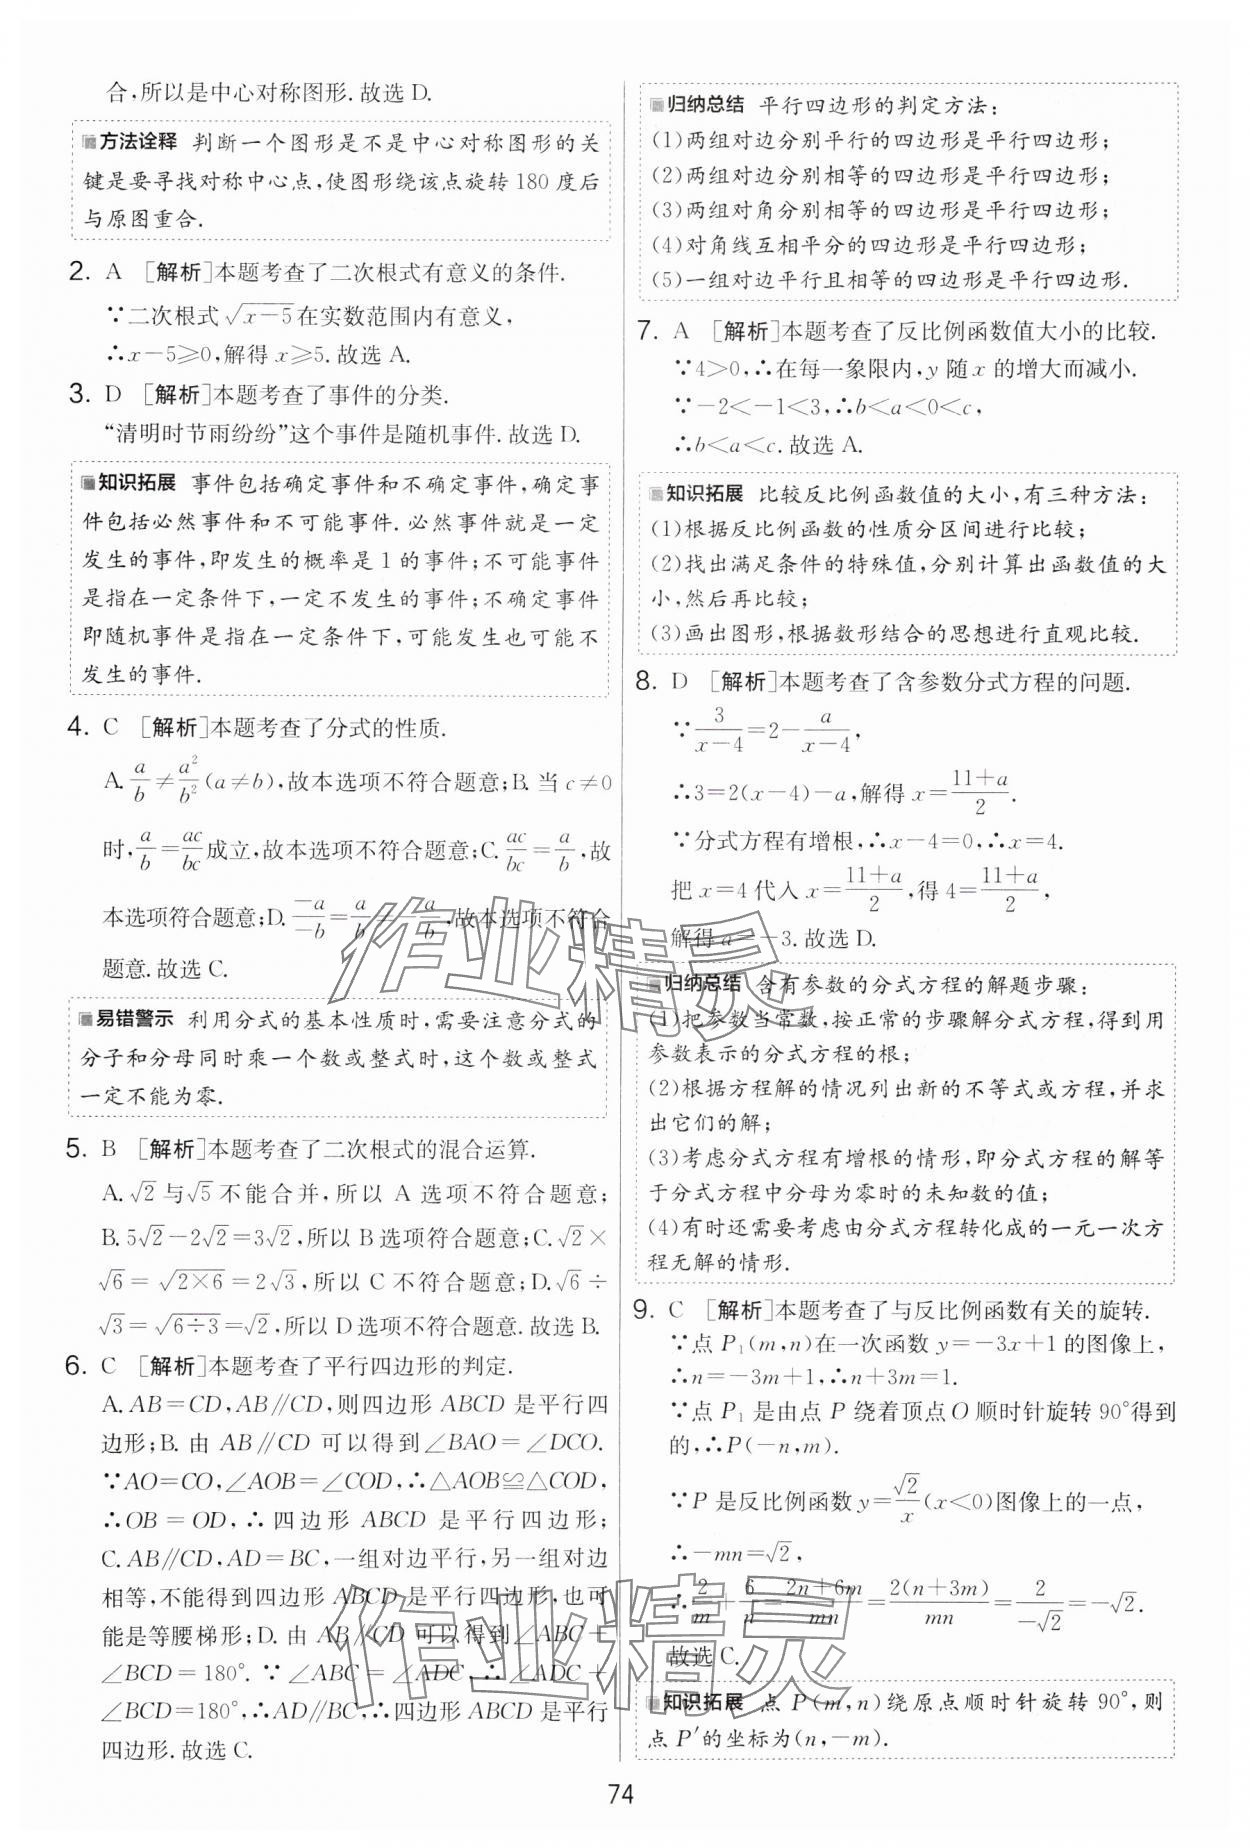 合,所以是中心对称图形.故选 D.
方法诠释 判断一个图形是不是中心对称图形的关
键是要寻找对称中心点,使图形绕该点旋转 180 度后
与原图重合.
2. A [解析]本题考查了二次根式有意义的条件.
∵二次根式√(x-5)在实数范围内有意义,
∴x-5≥0,解得 x≥5.故选 A.
3. D [解析]本题考查了事件的分类.
“清明时节雨纷纷”这个事件是随机事件.故选 D.
知识拓展 事件包括确定事件和不确定事件,确定事
件包括必然事件和不可能事件.必然事件就是一定
发生的事件,即发生的概率是 1 的事件;不可能事件
是指在一定条件下,一定不发生的事件;不确定事件
即随机事件是指在一定条件下,可能发生也可能不
发生的事件.
4. C [解析]本题考查了分式的性质.
A. a/b≠a²/b²(a≠b),故本选项不符合题意;B. 当 c≠0
时,a/b=ac/bc成立,故本选项不符合题意;C. ac/bc=a/b,故
本选项符合题意;D. -a/-b=a/b≠-a/b,故本选项不符合
题意.故选 C.
易错警示 利用分式的基本性质时,需要注意分式的
分子和分母同时乘一个数或整式时,这个数或整式
一定不能为零.
5. B [解析]本题考查了二次根式的混合运算.
A.√2与√5不能合并,所以 A 选项不符合题意;
B. 5√2-2√2=3√2,所以 B选项符合题意;C.√2×
√6=√(2×6)=2√3,所以 C 不符合题意;D.√6÷
√3=√(6÷3)=√2,所以 D选项不符合题意.故选 B.
6. C [解析]本题考查了平行四边形的判定.
A. AB=CD,AB∥CD,则四边形 ABCD 是平行四
边形;B. 由 AB∥CD 可以得到∠BAO=∠DCO.
∵AO=CO,∠AOB=∠COD,∴△AOB≌△COD,
∴OB=OD,∴四边形 ABCD 是平行四边形;
C. AB∥CD,AD=BC,一组对边平行,另一组对边
相等,不能得到四边形 ABCD 是平行四边形,也可
能是等腰梯形;D. 由 AB∥CD 可以得到∠ABC+
∠BCD=180°. ∵∠ABC=∠ADC,∴∠ADC+
∠BCD=180°,∴AD∥BC,∴四边形 ABCD 是平行
四边形.故选 C.
归纳总结 平行四边形的判定方法:
(1)两组对边分别平行的四边形是平行四边形;
(2)两组对边分别相等的四边形是平行四边形;
(3)两组对角分别相等的四边形是平行四边形;
(4)对角线互相平分的四边形是平行四边形;
(5)一组对边平行且相等的四边形是平行四边形.
7. A [解析]本题考查了反比例函数值大小的比较.
∵4>0,∴在每一象限内,y 随 x 的增大而减小.
∵-2<-1<3,∴b<a<0<c,
∴b<a<c.故选 A.
知识拓展 比较反比例函数值的大小,有三种方法:
(1)根据反比例函数的性质分区间进行比较;
(2)找出满足条件的特殊值,分别计算出函数值的大
小,然后再比较;
(3)画出图形,根据数形结合的思想进行直观比较.
8. D [解析]本题考查了含参数分式方程的问题.
∵3/(x-4)=2-a/(x-4),
∴3=2(x-4)-a,解得 x=(11+a)/2.
∵分式方程有增根,∴x-4=0,∴x=4.
把 x=4 代入 x=(11+a)/2,得 4=(11+a)/2,
解得 a=-3.故选 D.
归纳总结 含有参数的分式方程的解题步骤:
(1)把参数当常数,按正常的步骤解分式方程,得到用
参数表示的分式方程的根;
(2)根据方程解的情况列出新的不等式或方程,并求
出它们的解;
(3)考虑分式方程有增根的情形,即分式方程的解等
于分式方程中分母为零时的未知数的值;
(4)有时还需要考虑由分式方程转化成的一元一次方
程无解的情形.
9. C [解析]本题考查了与反比例函数有关的旋转.
∵点 P₁(m,n)在一次函数 y=-3x+1 的图像上,
∴n=-3m+1,∴n+3m=1.
∵点 P₁ 是由点 P 绕着顶点 O 顺时针旋转 90°得到
的,∴P(-n,m).
∵P 是反比例函数 y=√2/x(x<0)图像上的一点,
∴-mn=√2,
∴2/m+6/n=(2n+6m)/mn=2(n+3m)/mn=2/-√2=-√2.
故选 C.
知识拓展 点 P(m,n)绕原点顺时针旋转 90°,则
点 P′的坐标为(n,-m).
74
作业精灵
作业精灵